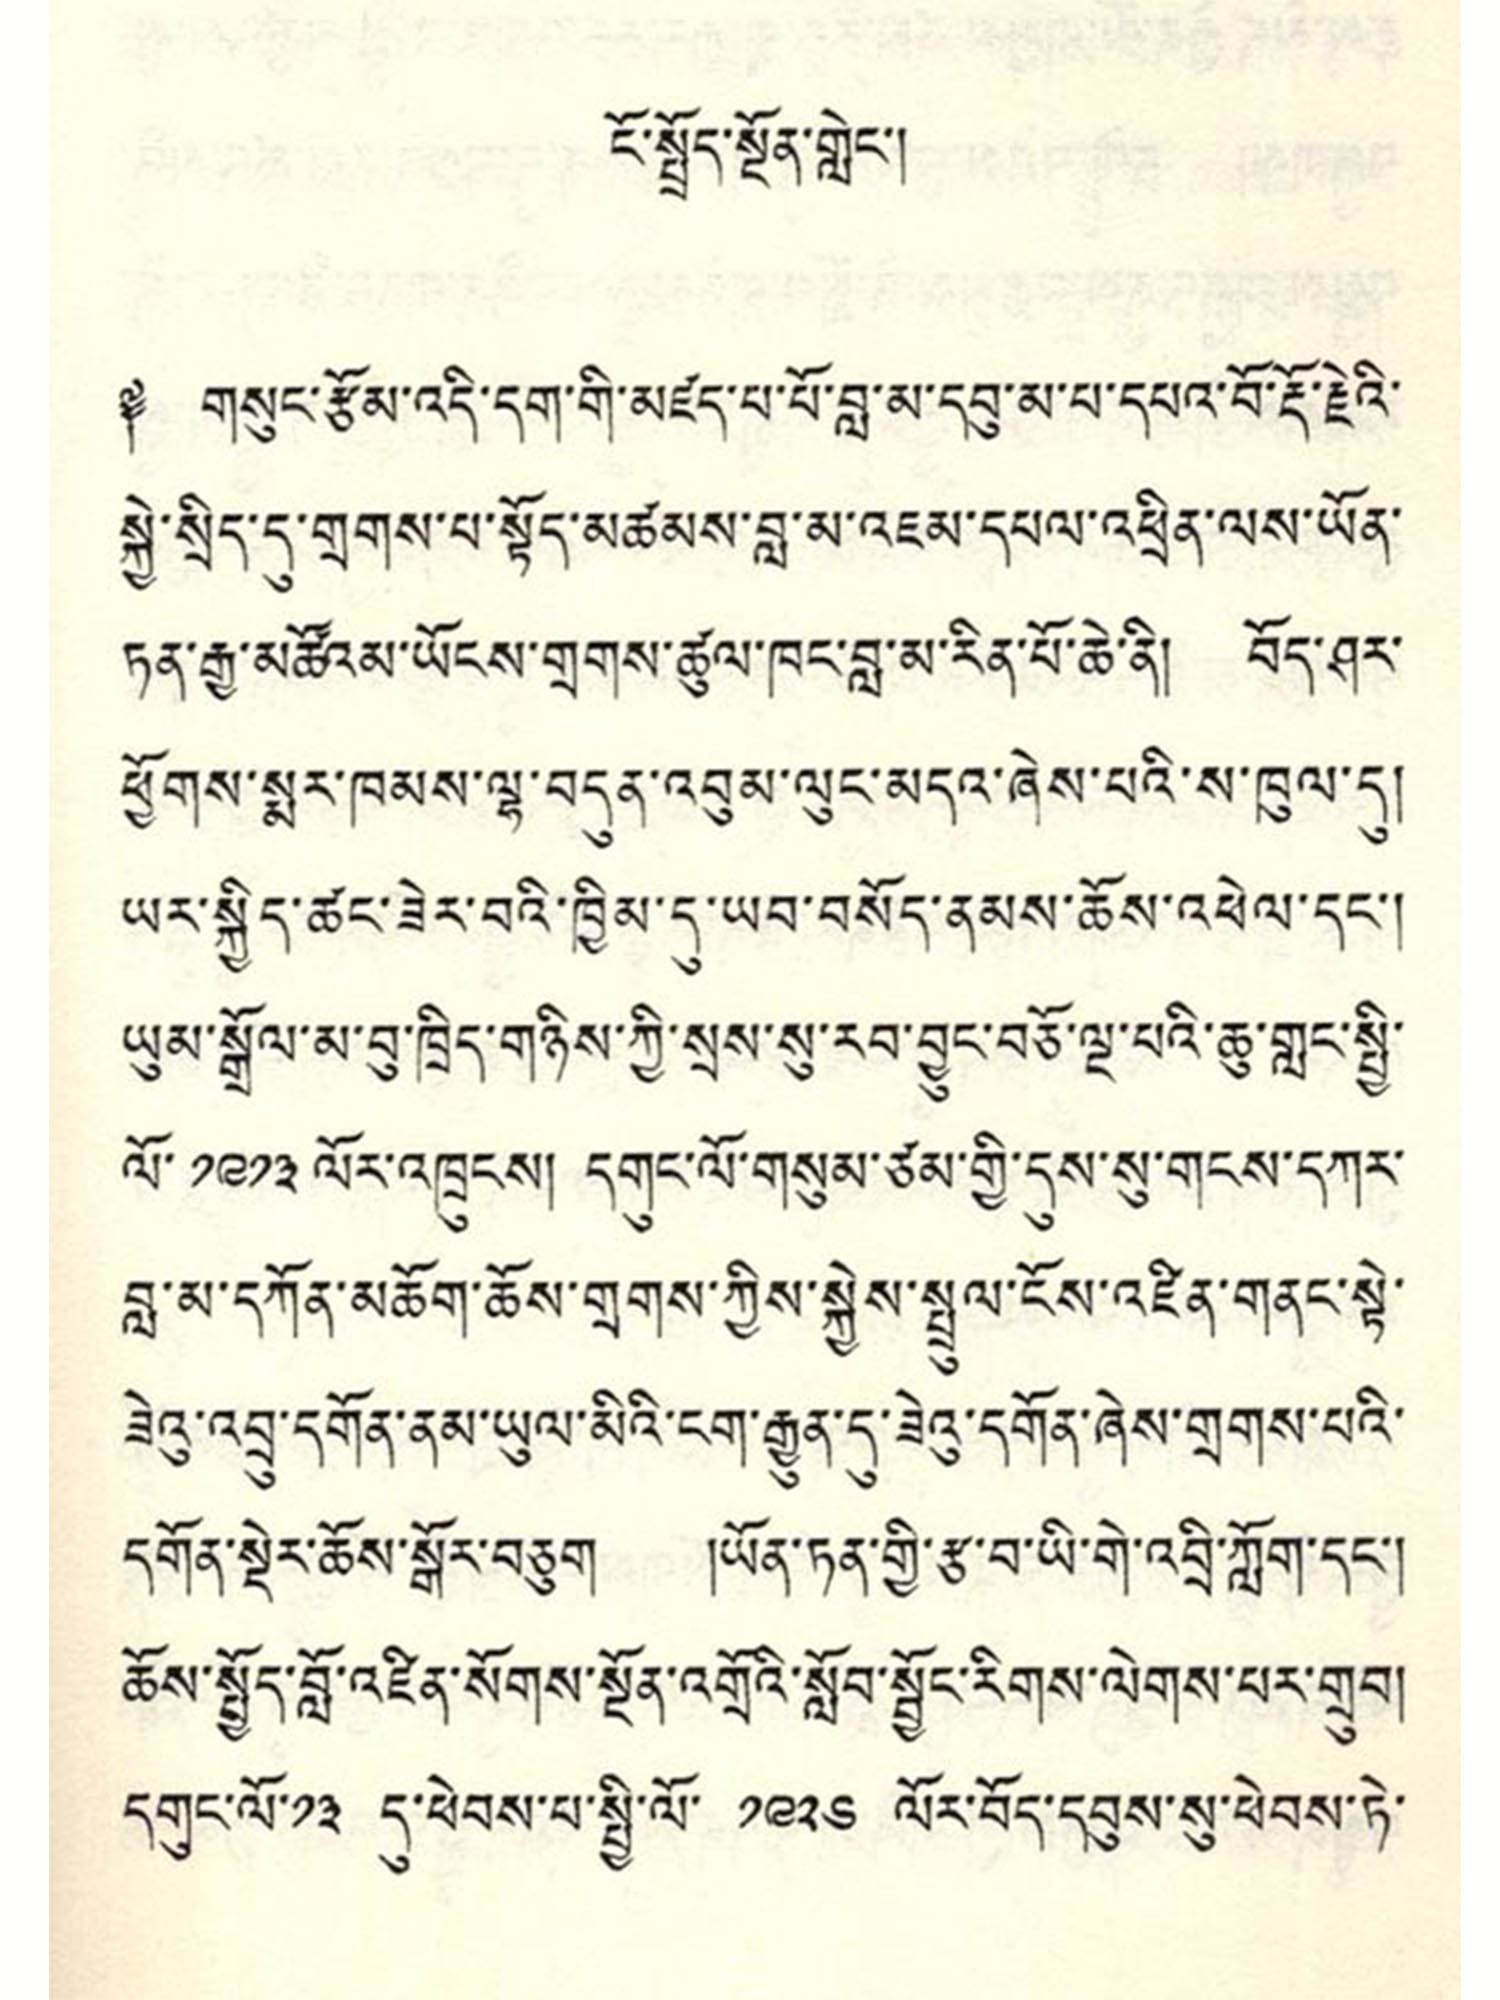 ངོ་སྤྲོད་སྔོན་གླེང་།
༄ གསུང་རྩོམ་འདི་དག་གི་མཛད་པ་པོ་བླ་མ་དབུ་མ་པ་དཔའ་བོ་རྡོ་རྗེའི་
སྐྱེ་སྲིད་དུ་གྲགས་པ་སྟོད་མཚམས་བླ་མ་འཇམ་དཔལ་འཕྲིན་ལས་ཡོན་
ཏན་རྒྱ་མཚོའམ་ཡོངས་གྲགས་ཚུལ་ཁང་བླ་མ་རིན་པོ་ཆེ་ནི། བོད་ཤར་
ཕྱོགས་སྨར་ཁམས་ལྷ་བདུན་འབུམ་ལུང་མདའ་ཞེས་པའི་ས་ཁུལ་དུ།
ཡར་སྐྱིད་ཚང་ཟེར་བའི་ཁྱིམ་དུ་ཡབ་བསོད་ནམས་ཆོས་འཕེལ་དང་།
ཡུམ་སྒྲོལ་མ་བུ་ཁྲིད་གཉིས་ཀྱི་སྲས་སུ་རབ་བྱུང་བཅོ་ལྔ་པའི་ཆུ་གླང་སྤྱི་
ལོ་ ༡༩༡༣ ལོར་འཁྲུངས། དགུང་ལོ་གསུམ་ཙམ་གྱི་དུས་སུ་གངས་དཀར་
བླ་མ་དཀོན་མཆོག་ཆོས་གྲགས་ཀྱིས་སྐྱེས་སྤྲུལ་ངོས་འཛིན་གནང་སྟེ་
ཟེའུ་འབྲུ་དགོན་ནམ་ཡུལ་མིའི་ངག་རྒྱུན་དུ་ཟེའུ་དགོན་ཞེས་གྲགས་པའི་
དགོན་སྡེར་ཆོས་སྒོར་བཅུག །ཡོན་ཏན་གྱི་རྩ་བ་ཡི་གེ་འབྲི་ཀློག་དང་།
ཆོས་སྤྱོད་བློ་འཛིན་སོགས་སྔོན་འགྲོའི་སློབ་སྦྱོང་རིགས་ལེགས་པར་གྲུབ།
དགུང་ལོ་༡༣ དུ་ཕེབས་པ་སྤྱི་ལོ་ ༡༩༢༥ ལོར་བོད་དབུས་སུ་ཕེབས་ཏེ་